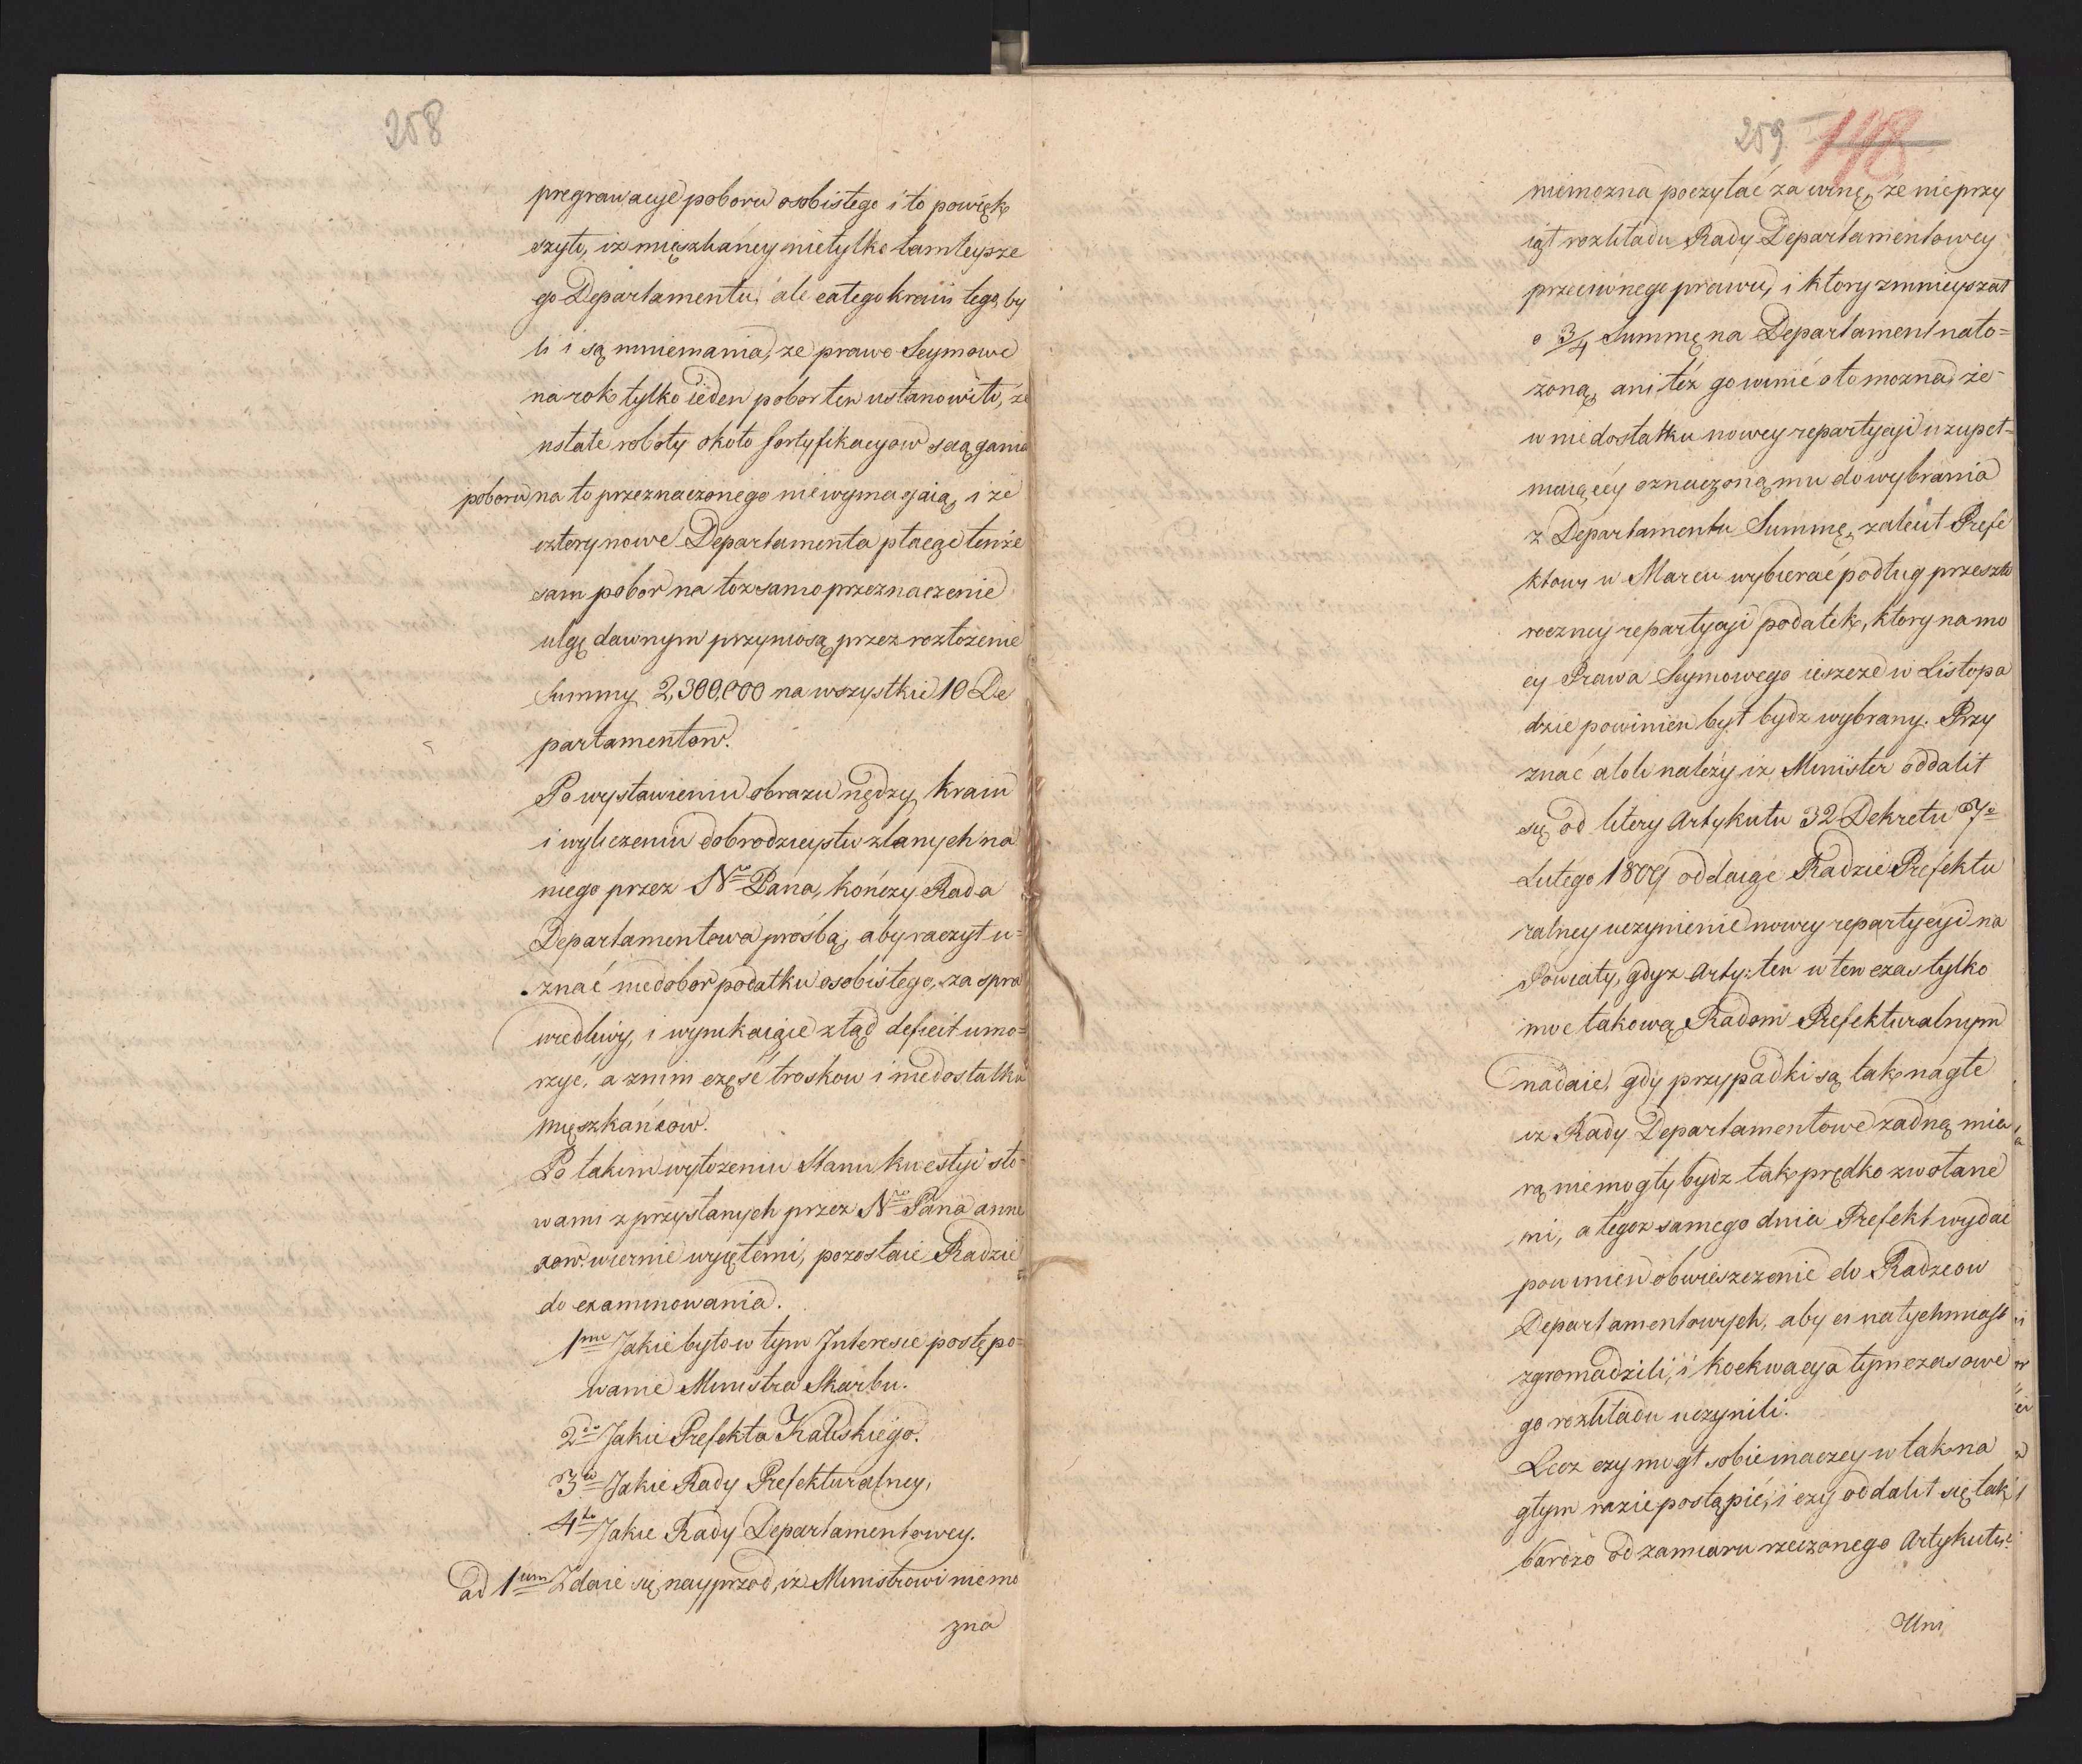 258
pregrawacye poboru osobistego i to powięk
szyło, iż mieszkańcy nietylko tamteysze
go Departamentu, ale całego kraiu tego by
li i są mniemania, że prawo Seymowe
na rok tylko ieden pobor ten ustanowiło, że
ustałe roboty około fortyfikacyow sciągania
poboru na to przeznaczonego niewymagaią, i że
cztery nowe Departamenta płacąc tenże
sam pobor na tożsamo przeznaczenie
ulgę dawnym przyniosą przez rozłożenie
Summy 2,300,000 na wszystkie 10 De
partamentow.
Po wystawieniu obrazu nędzy kraiu
i wyliczeniu dobrodzieystw zlanych na
niego przez N° Pana, kończy Rada
Departamentowa prośbą, aby raczył u=
znać niedobor podatku osobistego, za spra
wiedliwy, i wynikaiące ztąd deficit umo=
rzyć, a znim część troskow i niedostatku
mieszkańcow.
Po takim wyłożeniu Stanu kwestyi sło=
wami z przysłanych przez N° Pana anne
xow wiernie wyiętemi, pozostaie Radzie
do examinowania.
1mo Jakie było w tym Interesie postępo=
wanie Ministra Skarbu.
2do Jakie Prefekta Kaliskiego.
3tio Jakie Rady Prefekturalney,
4to Jakie Rady Departamentowey.
ad 1um Zdaie się nayprzod, iż Ministrowi niemo
zna
259 118
niemozna poczytać za winę, ze nieprzy
iął rozkładu Rady Departamentowey
przeciwnego prawu, i ktory zmnieyszał
o 3/4 Summę na Departament nało=
żoną, ani też go winić oto mozna, że
w niedostatku nowey repartycyi uzupeł=
niaiącey oznaczoną mu do wybrania
z Departamentu Summę, zalecił Prefe
ktowi w Marcu wybierać podług przeszło
roczney repartycyi podatek, ktory na mo
cy Prawa Seymowego ieszcze w Listopa
dzie powinien był bydz wybrany. Przy
znać atoli należy iż Minister oddalił
się od litery Artykułu 32 Dekretu 7°
Lutego 1809 oddaiąc Radzie Prefektu
ralney uczynienie nowey repartycyi na
Powiaty, gdyz Arty: ten w ten czas tylko
moc takową Radom Prefekturalnym
nadaie, gdy przypadki są tak nagłe
iz Rady Departamentowe zadną mia
rą niemogły bydz tak prędko zwołane
mi, a tegoz samego dnia Prefekt wydać
powinien obwieszczenie do Radzcow
Departamentowych, aby ci natychmiast
zgromadzili, i koekwacya tymczasowe
go rozkładu uczynili.
Lecz czy mógł sobie inaczey w tak na
głym razie postąpić, i czy oddalił się tak
bardzo od zamiaru rzeczonego Artykułu?
Uni